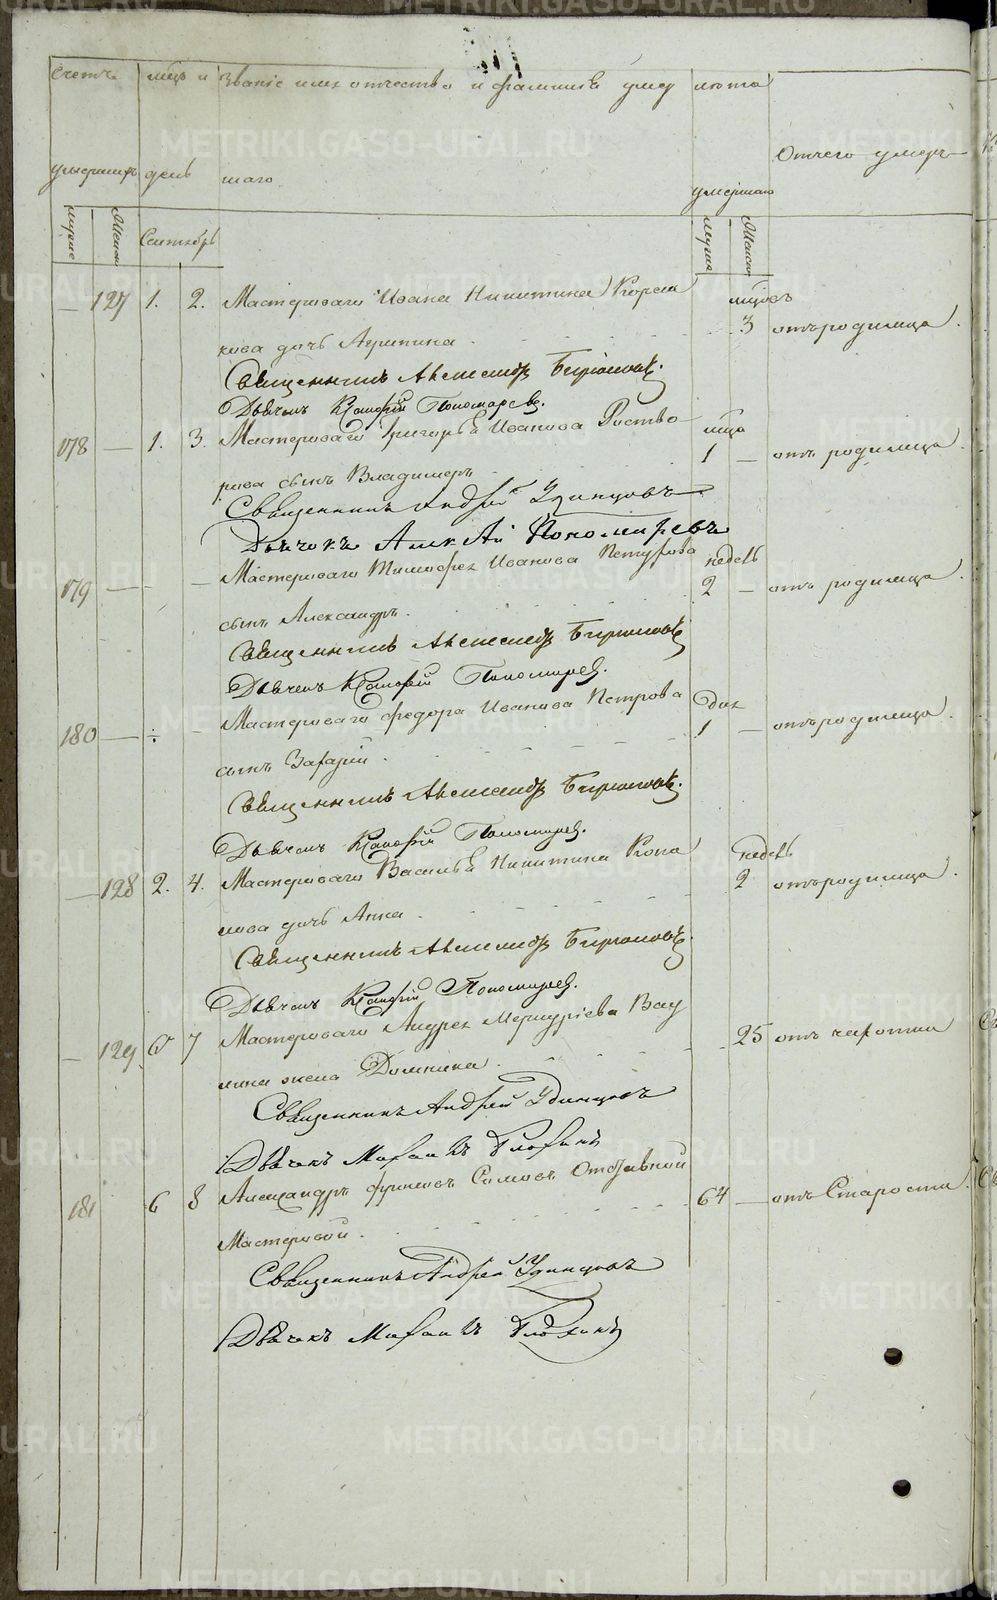 Счетъ мцъ и званіе имя отчество и фамилія умер лета
умершихъ день шаго умершаго Отчего умеръ
мужие Женск Сентябрь мужие Женск
— 127 1. 2. Мастероваго Ивана Никитина Корса мцовъ
кова дочь Агрипина 3 отъ родимца.
Священникъ Александръ Бирюковъ.
Дьячекъ Пономаревъ.
178 — 1. 3. Мастероваго Григорья Иванова Роство мца
рова сынъ Владимеръ 1 — отъ родимца.
Священникъ Андрей Удинцовъ
Дьячокъ Алексѣй Пономаревъ
179 — - — Мастероваго Тимофея Иванова Петухова недель
сынъ Александръ. 2 — отъ родимца.
Священникъ Александръ Бирюковъ
Дьячекъ Пономаревъ.
180 — ÷ - Мастероваго Федора Иванова Петрова дня
сынъ Захарій. 1 — отъ родимца.
Священникъ Александръ Бирюковъ.
Дьячекъ Пономаревъ.
— 128 2. 4. Мастероваго Василья Никитина Копа недель
лова дочь Анна. 2 отъ родимца.
Священникъ Александръ Бирюковъ.
Дьячекъ Пономаревъ.
— 129. 6 7 Мастероваго Андрея Меркуріева Вау
лина жена Домника. 25 отъ чахотки
Священникъ Андрей Удинцовъ
Дьячекъ Глохинъ
181 6 8 Александръ Сомовъ Отставной
Мастеровой. 64 — отъ Старости.
Священникъ Андрей Удинцовъ
Дьячекъ Глохинъ
METRIKI.GASO-URAL.RU